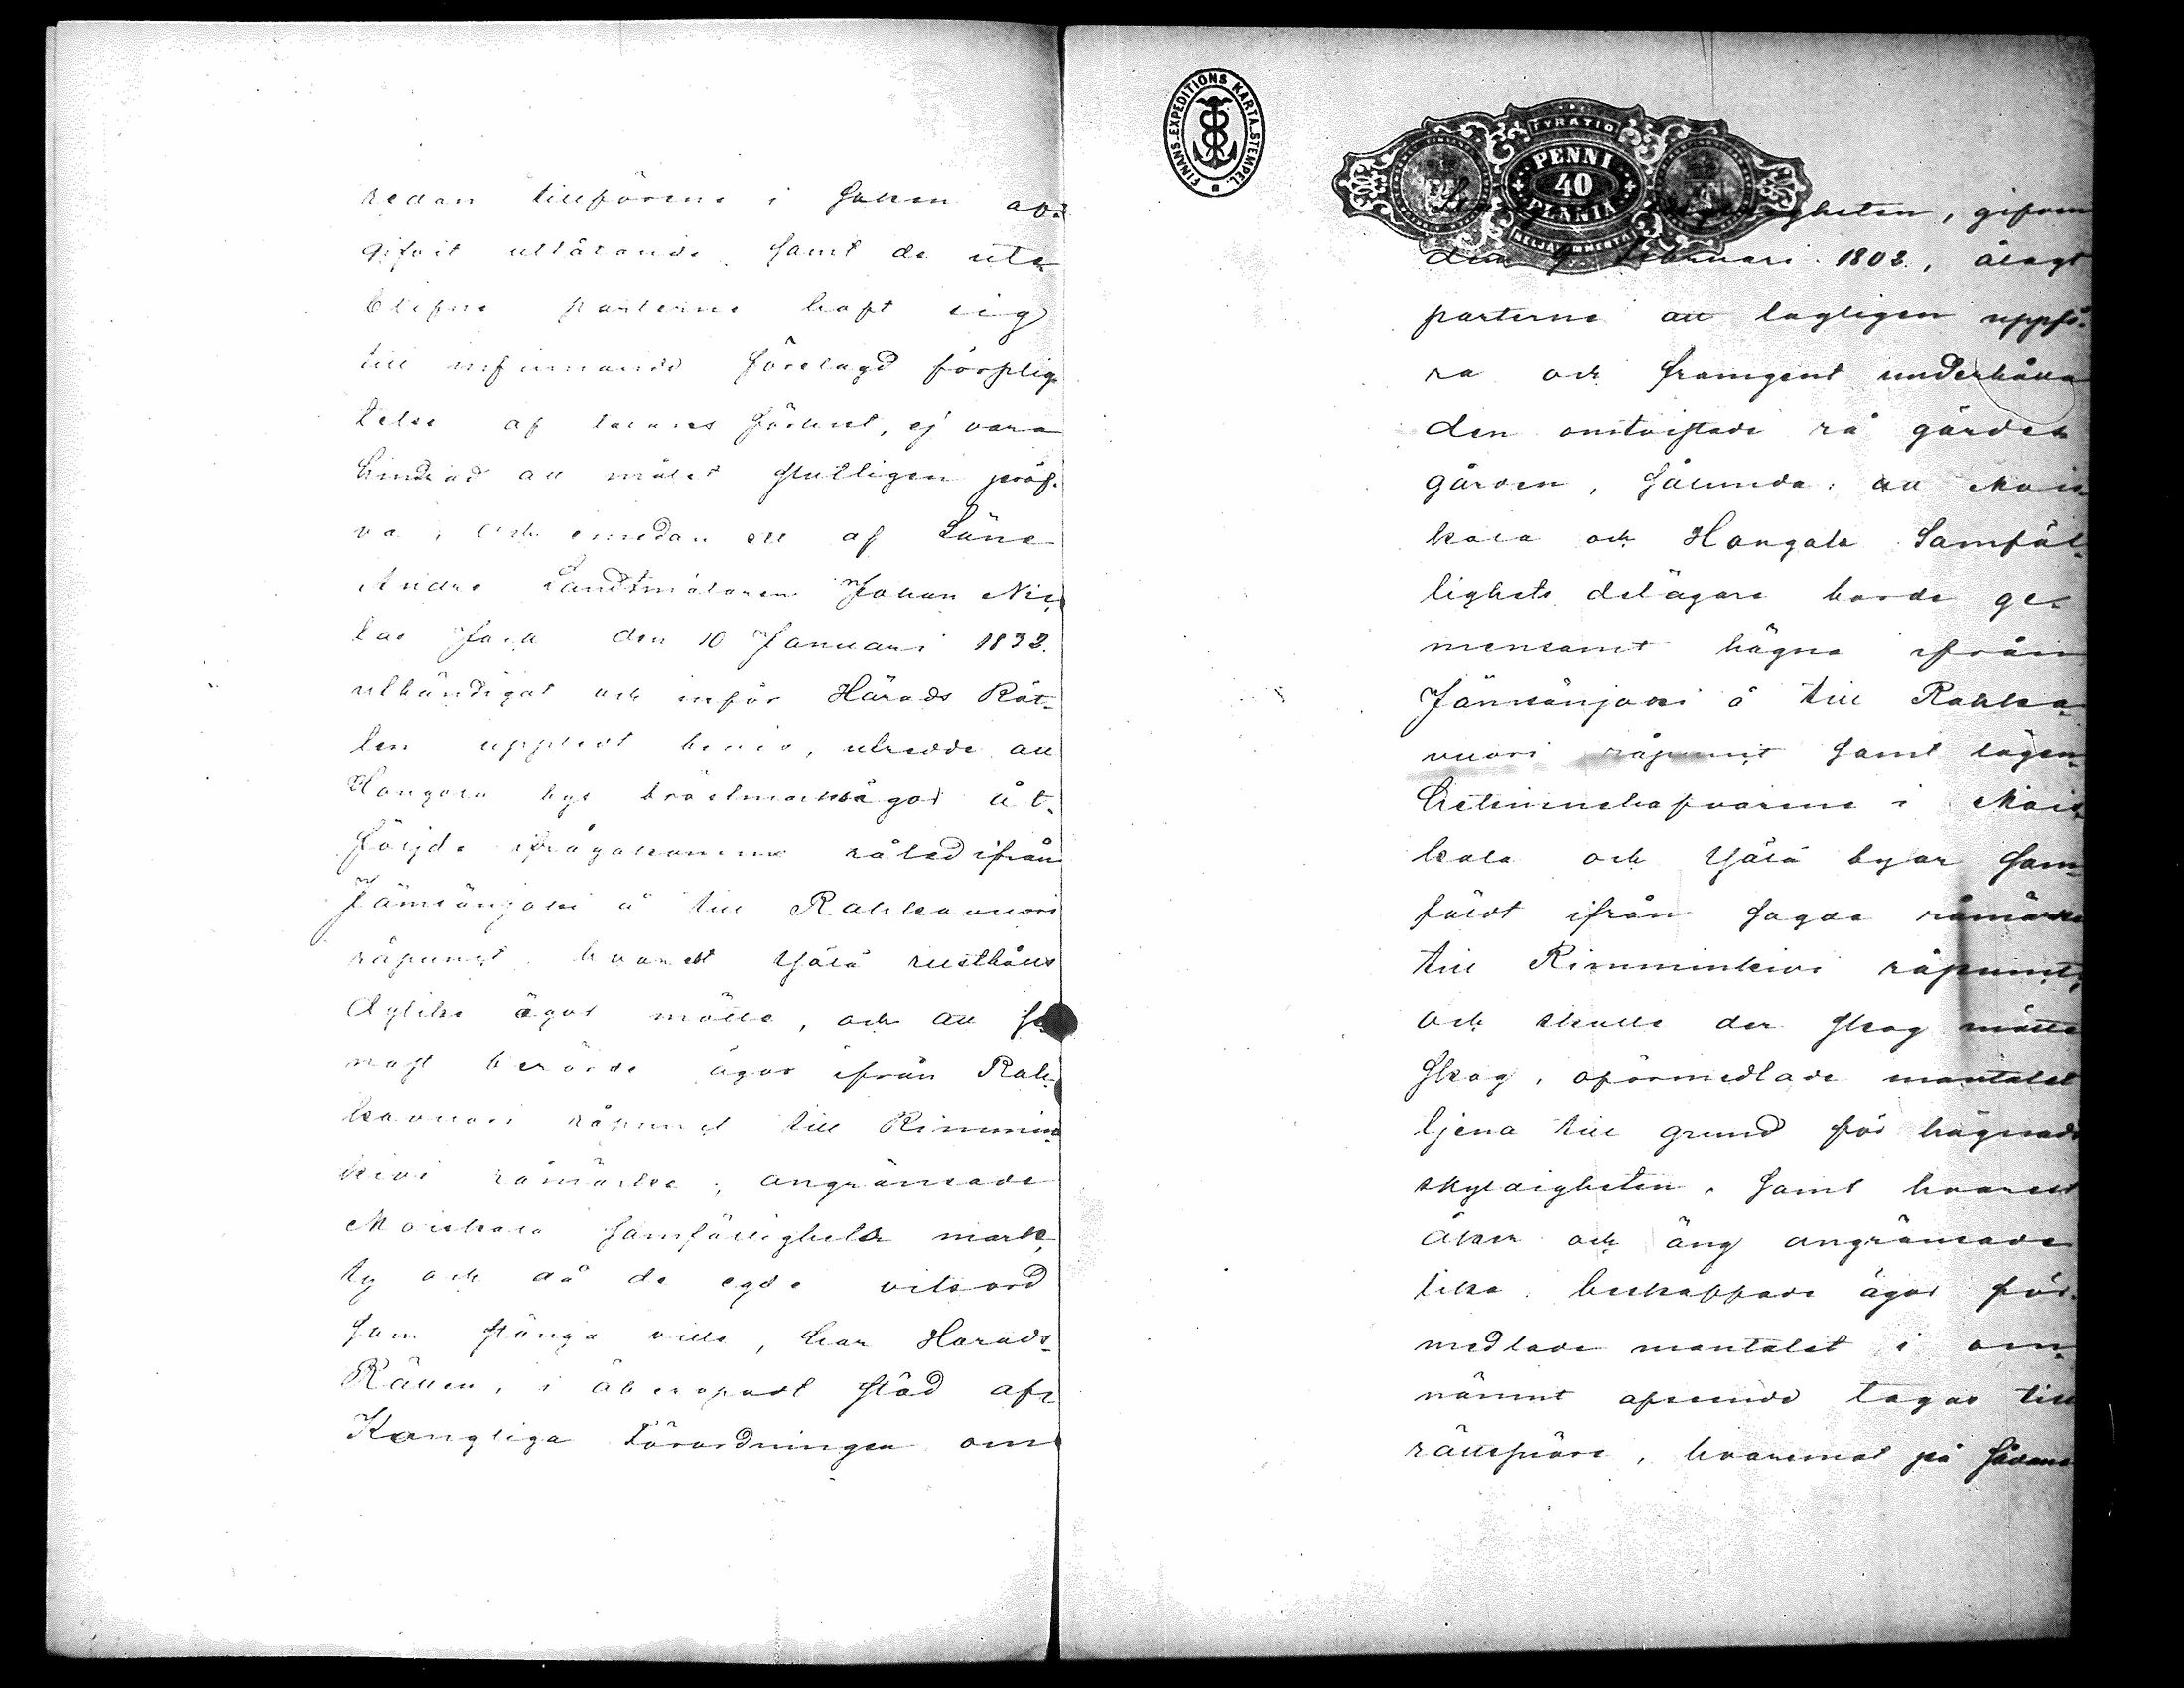 redan tillförene i saken af-
gifvit utlåtande samt de ute-
blifne parterne haft sig
till infinnande förelagd förplig-
telse af laenes förlust, ej vara
hindrad att målet slutligen pröf-
va, och emedan en af Läne
Andre Landtmätaren Johan Nic-
las den 10 Januari 1832.
uthändigat och inför Härads Rät-
ten uppledt bevis, utredde att
Hongola bys ägor åt-
följde ifrågakomne råled ifrån
Jämsänjoki å till Rahkavuori
råpunct, hvarest Yijälä rusthålls
dylika ägor mötte, och att
nast berörde ägor ifrån Rah-
kavuori råpunct till Rimmin-
kivi råmärke, angränsade
Moiskala samfällighets mark,
ty och då de egde vitsord
som stänga ville, har Härads-
Rätten, i åberopadt stöd af
Kongliga Förordningen om
FINANS.EXPEDITIONS KARTA.STEMPEL.
FYRATIO
PENNI
40
PENNIÄ
NELJÄKYMMENTÄ
gheten, gifven
den 9 Februari 1802, ålagt
parterne att lagligen uppfö-
ra och framgent underhålla
den omtvistade rå gärdes
gården, sålunda: att Mois-
kala och Hongola Samfäl-
lighets delägare borde ge-
mensamt hägna ifrån
Jämsänjoki å till Rahka-
vuori råpunct samt lägen-
hetsinnehafvarene i Mois-
kala och byar sam-
fäldt ifrån sagde råmärke
till Rimminkivi råpunct,
och skulle der skog mötte
skog, oförmedlade mantalet
tjena till grund för hägnads
skyldigheten, samt hvarest
åker och äng angränsade
lika beskaffade ägor för-
medlade mantalet i om-
nämnt afseende tagas till
rättesnöre, hvaremot på sådane